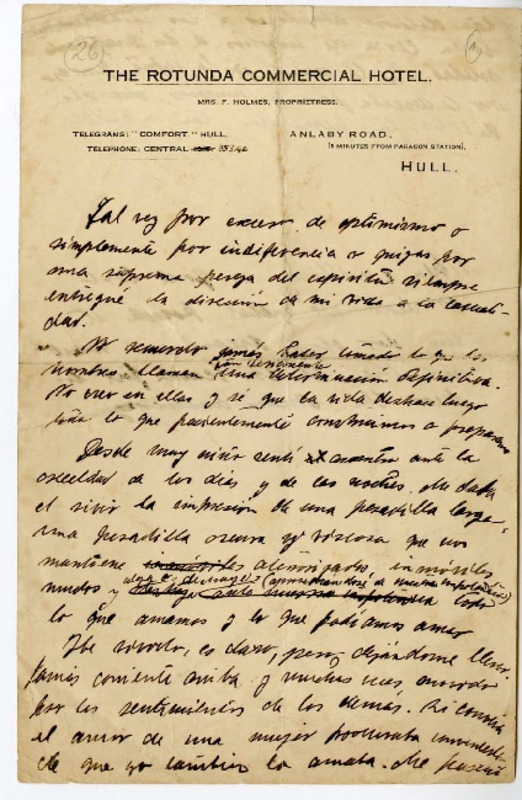 26
THE ROTUNDA COMMERCIAL HOTEL.
MRS. F. HOLMES, PROPRIETRESS.
TELEGRAMS: "COMFORT," HULL.
ANLABY ROAD.
TELEPHONE: CENTRAL
(5 MINUTES FROM PARAGON STATION),
HULL.
Tal vez por exceso de optimismo o
simplemente por indiferencia o quizas por
una suprema pereza del espiritu siempre
entregué la dirección de mi vida a la casuali-
dad.
No recuerdo jamás haber tomado lo que los
hombres llaman una determinación definitiva.
No creo en ellas y sé que la vida deshace luego
todo lo que pacientemente construimos o preparamos
Desde muy niño sentí ante la
de los días y de las noches. Me daba
el vivir la impresión de una pesadilla larga,
una pesadilla oscura y viscosa que nos
mantiene inmóviles
mudos y (aprovechandose de nuestra impotencia) todo
lo que amamos y lo que podíamos amar
He vivido, es claro, pero dejándome llevar.
Jamás corriente arriba y muchas veces
por los sentimientos de los demás. Si conocía
el amor de una mujer procuraba
de que yo también la amaba. Me